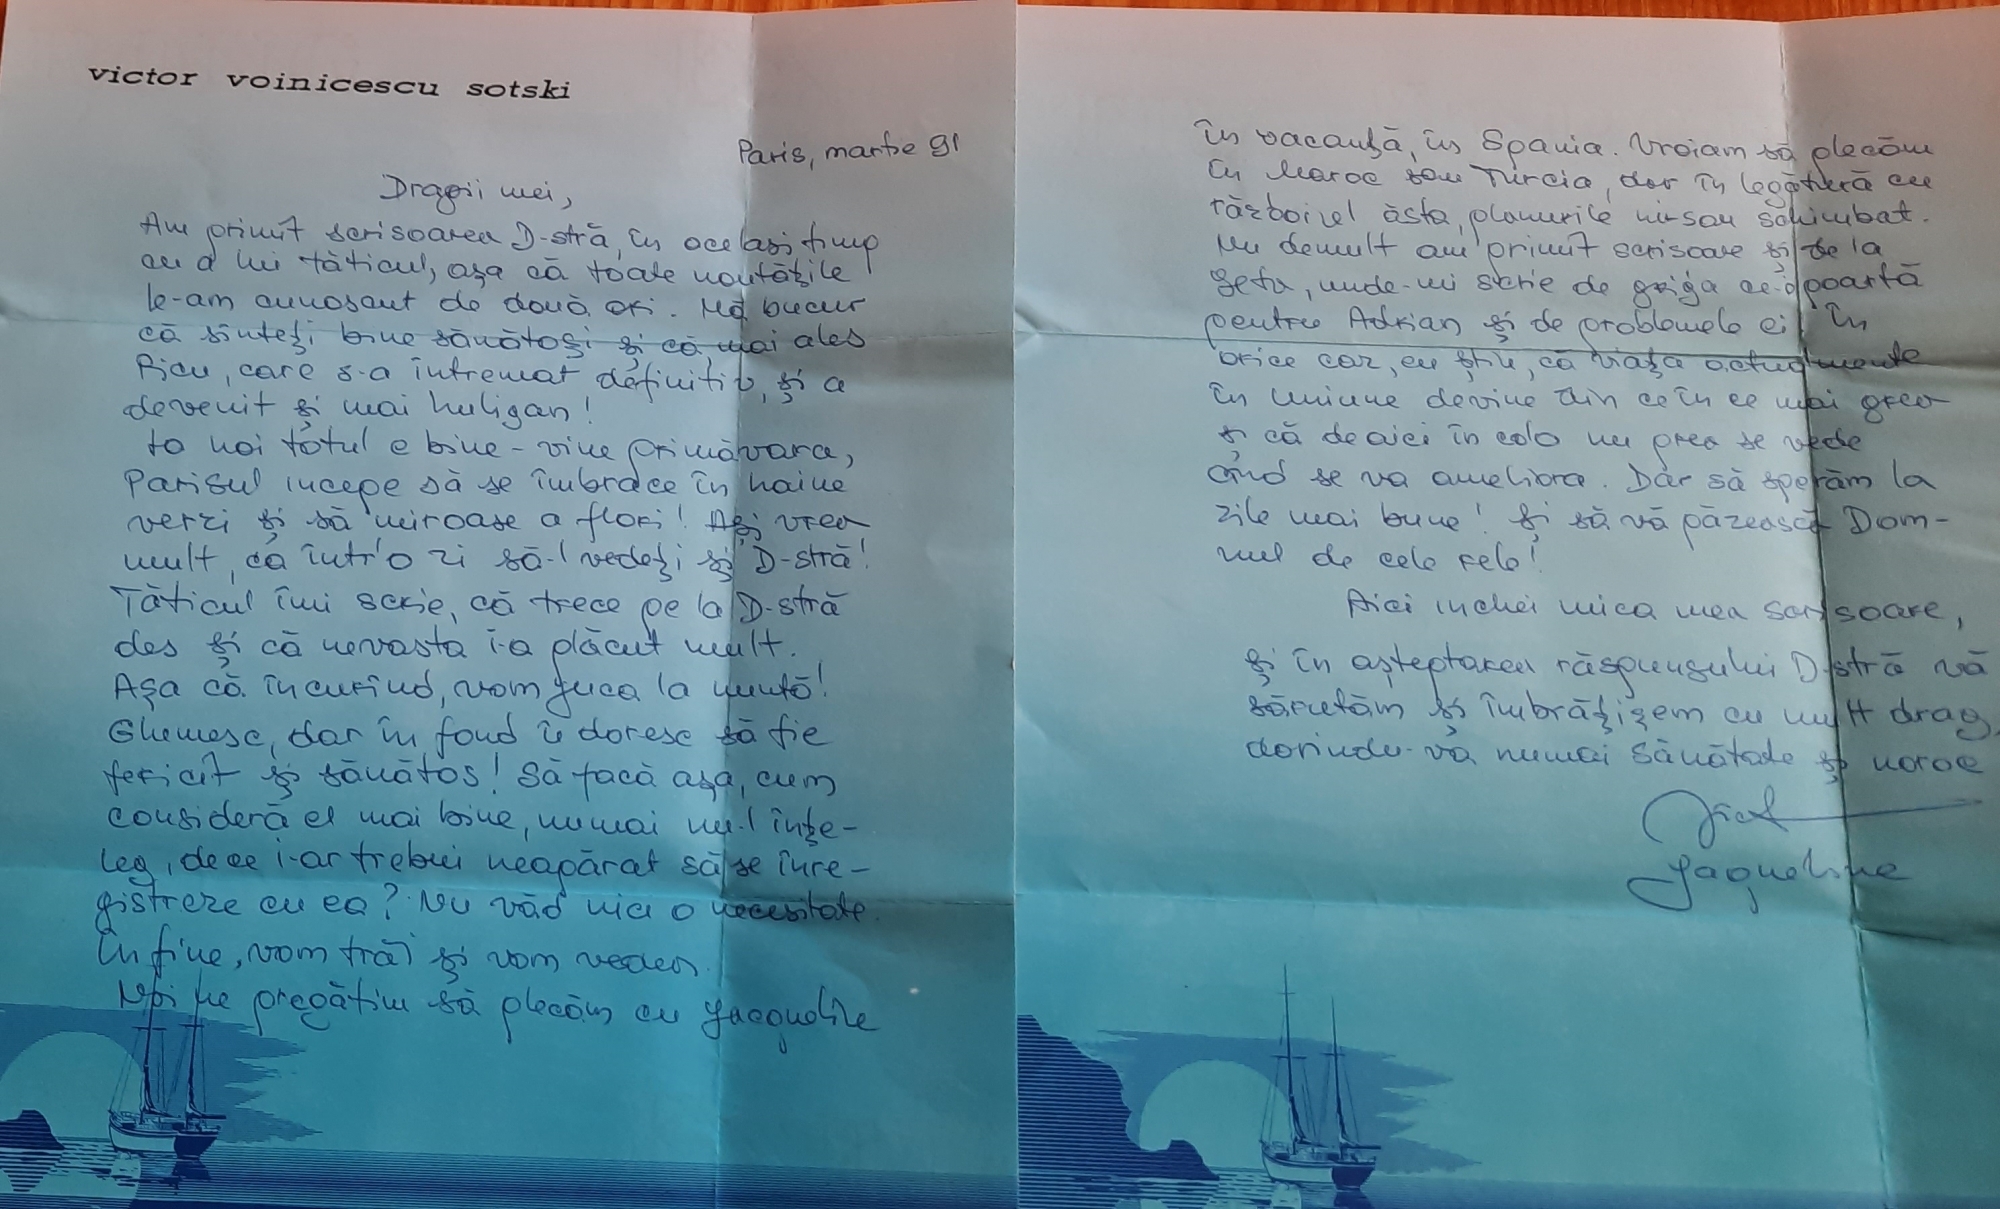 victor voinicescu sotski
Paris, martie 91
Dragii mei,
Am primit scrisoarea D-stră, în acelaşi timp
cu a lui tăticul, aşa că toate noutăţile
le-am cunoscut de două ori. Mă bucur
că sînteţi bine sănătoşi şi că, mai ales
Ricu, care s-a întremat definitiv, şi a
devenit şi mai huligan!
La noi totul e bine - vine primăvara,
Parisul incepe să se îmbrace în haine
verzi şi să miroase a flori! Aşi vrea
mult, ca într'o zi să-l vedeţi şi D-stră!
Tăticul îmi scrie, că trece pe la D-stră
des şi că nevasta i-a plăcut mult.
Aşa că în curînd, vom juca la nuntă!
Glumesc, dar în fond îi doresc să fie
fericit şi sănătos! Să facă aşa, cum
consideră el mai bine, numai nu-l înţe-
leg, de ce i-ar trebui neapărat să se înre-
gistreze cu ea? Nu văd nici o necesitate.
În fine, vom trăi şi vom vedea.
Noi ne pregătim să plecăm cu Jacqueline
în vacanţă, în Spania. Vroiam să plecăm
în Maroc sau Turcia, dar în legătură cu
războiul ăsta, planurile ni-sau schimbat.
Nu demult am primit scrisoare şi de la
Geta, unde-mi scrie de grija ce-o poartă
pentru Adrian şi de problemele ei. În
orice caz, eu ştiu, că viaţa actualmente
în Uniune devine din ce în ce mai grea
şi că de aici în colo nu prea se vede
cînd se va ameliora. Dar să sperăm la
zile mai bune! Şi să vă păzească Dom-
nul de cele rele!
Aici inchei mica mea scrisoare,
şi în aşteptarea răspunsului D-stră vă
sărutăm şi îmbrăţişem cu mult drag,
dorindu-vă numai sănătate şi noroc
Vict
Jaqueline